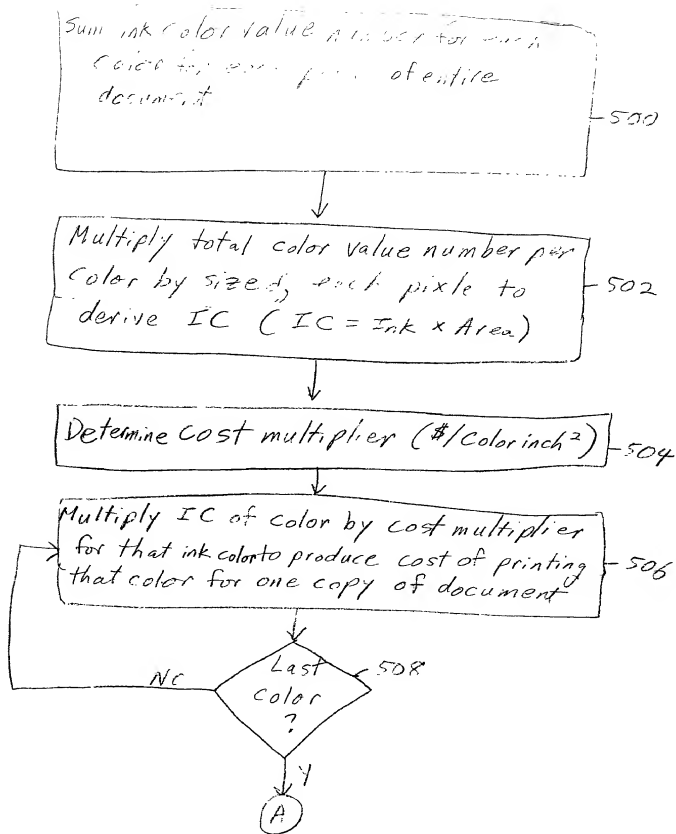 Sum ink color value number for each
color for each of entire
document
500
Multiply total color value number per
color by size of each pixle to
derive IC ( IC = Ink x Area)
502
Determine cost multiplier ($/Color inch²)
504
Multiply IC of color by cost multiplier
for that ink color to produce cost of printing
that color for one copy of document
506
Last
color
?
508
No
Y
A